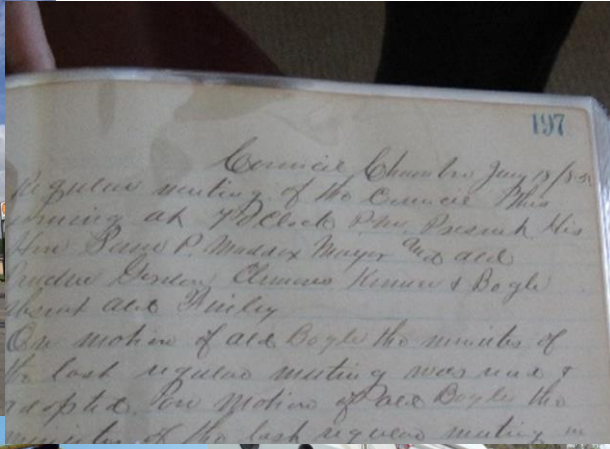 197
Council Chamber Jany 18
Regular meeting of the Council this
evening at 7 O Clock P.M. Present His
Hon P. Maddox Mayor and ald
Gordon Clemens & Bogle
absent ald Finley
On motion of ald Bogle the minutes of
the last regular meeting was read &
adopted. on Motion of ald Bogle the
minutes of the last regular meeting